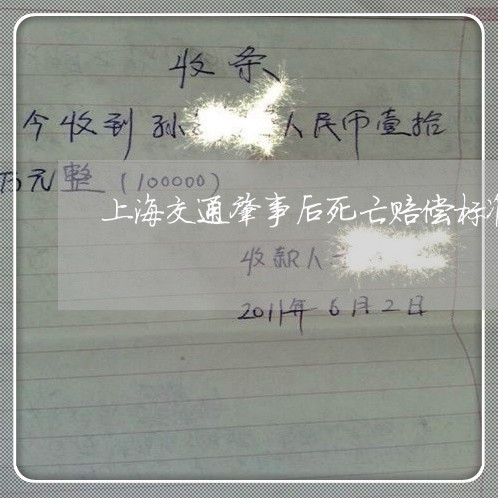 收条
今收到孙 人民币壹拾
万元整(100000)
上海交通肇事后死亡赔偿标准
收款人
2011年6月2日